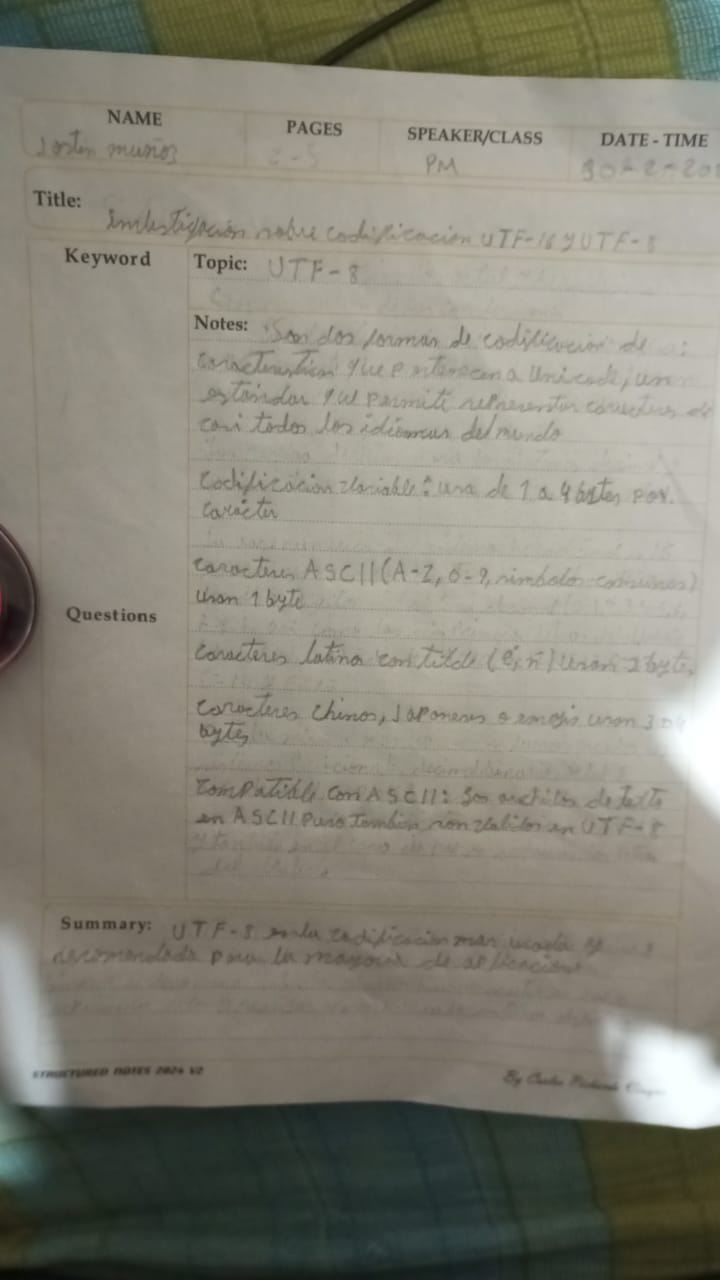 NAME PAGES SPEAKER/CLASS DATE - TIME
muñoz PM
Title:
Investigación sobre codificacion UTF-16 y UTF-8
Keyword
Topic: UTF-8
Notes: Son dos formas de codificacion de
que a Unicode, un
estandar que permite representar caracteres de
casi todos los idiomas del mundo
Codificacion variable: usa de 1 a 4 bytes por
carácter
Caracteres ASCII (A-Z, 0-9, simbolos comunes)
usan 1 byte
Questions
Caracteres latino con tilde (é, ñ) usan 2 bytes
Caracteres chinos, Japoneses o emojis usan 3 o 4
bytes
Compatible con ASCII: Los archivos de texto
en ASCII puro tambien son validos en UTF-8
Summary: UTF-8 es la codificacion mas usada y
recomendada para la mayoria de aplicaciones
STRUCTURED NOTES 2024 V2
By Carlos